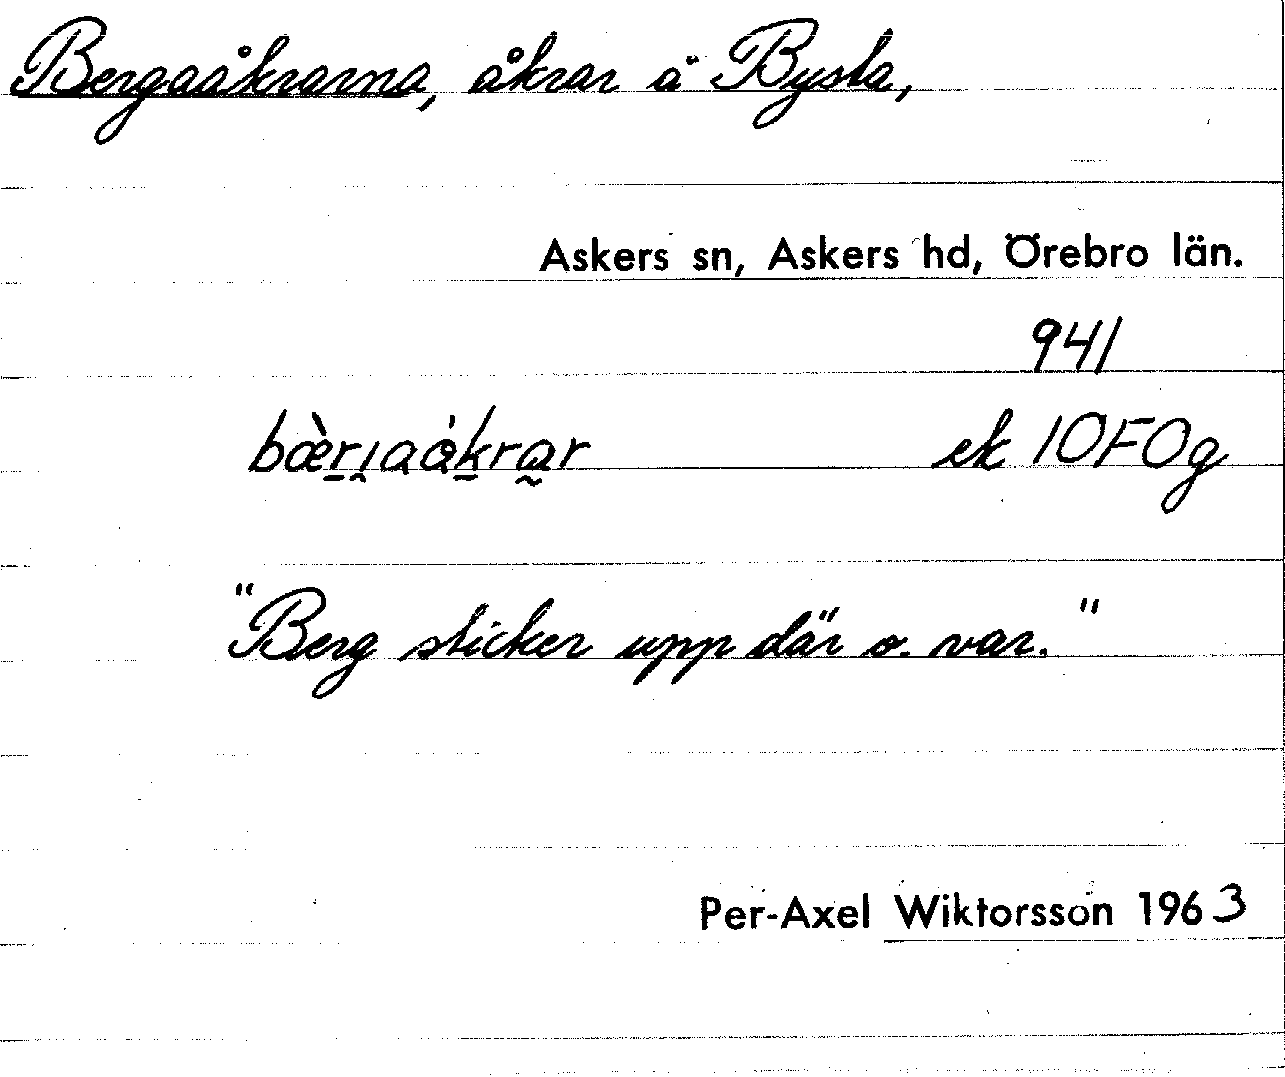 Bergaåkrarna, åkrar å Bysta,
Askers sn, Askers hd, Örebro län.
941
bæ̀rɪaåkrar ek 10F0g
"Berg sticker upp där o. var."
Per-Axel Wiktorsson 1963